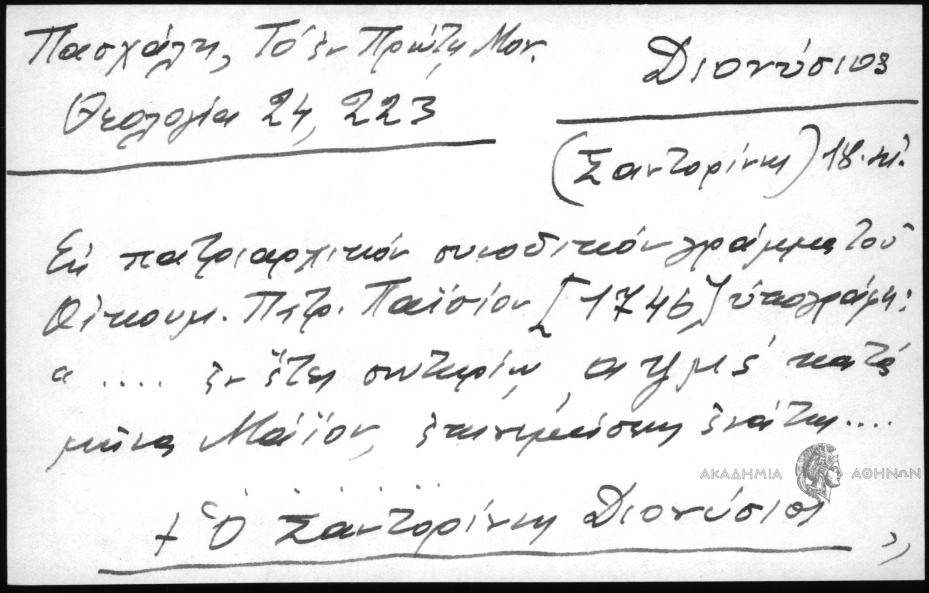 Πασχάλη, Τὸ ἐν Πρώτῃ Μον.
Θεολογία 24, 223
Διονύσιος
(Σαντορίνης) 18. αἰ.
Εἰς πατριαρχικόν συνοδικόν γράμμα τοῦ
Οἰκουμ. Πατρ. Παϊσίου [1746] ὑπογράφει:
« .... ἐν ἔτει σωτηρίῳ αψμς΄ κατά
μῆνα Μάϊον, ἐπινεμήσεως ἐνάτης....
+ Ὁ Σαντορίνης Διονύσιος »
ΑΚΑΔΗΜΙΑ ΑΘΗΝΩΝ